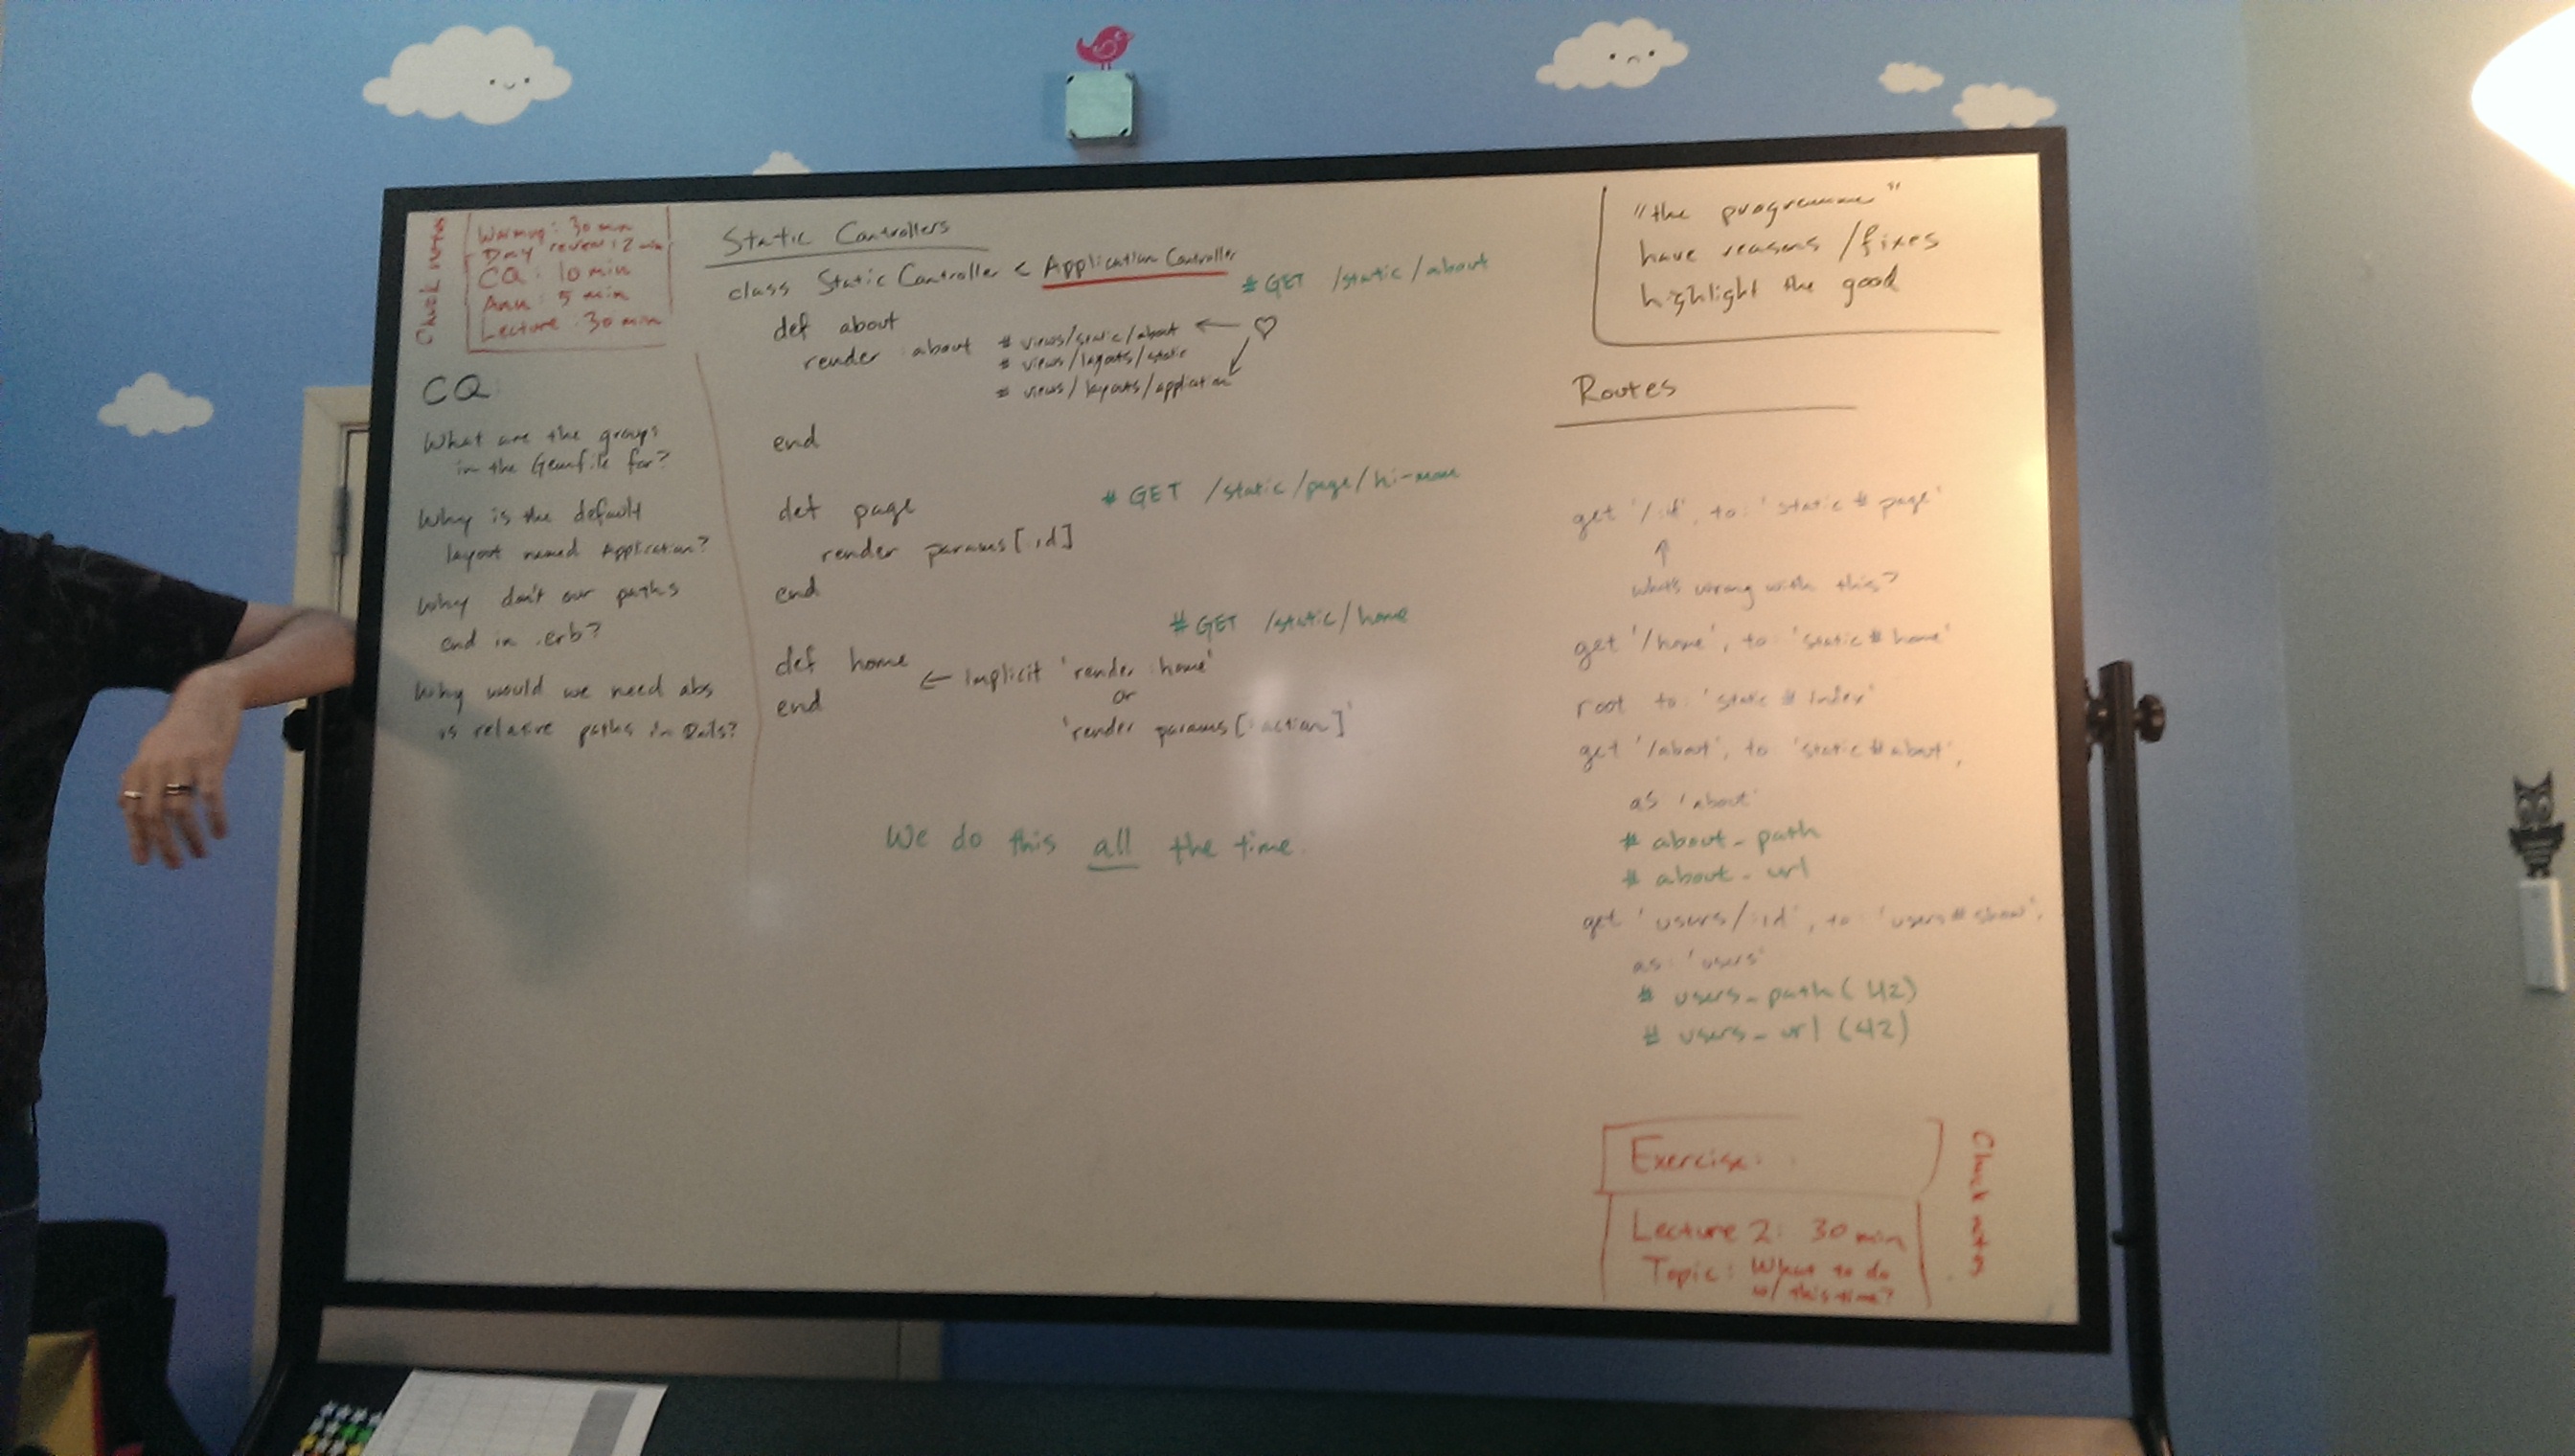 Chuck notes
Warmup: 30 min
Day review: 2 min
CQ: 10 min
Ann: 5 min
Lecture: 30 min
CQ:
What are the groups
in the Gemfile for?
Why is the default
layout named Application?
Why don't our paths
end in .erb?
Why would we need abs
vs relative paths in Rails?
Static Controllers
class Static Controller < Application Controller
# GET /static/about
def about
render :about # views/static/about ← ♡
# views/layouts/static
# views/layouts/application
end
# GET /static/page/hi-mom
def page
render params[:id]
end
# GET /static/home
def home ← Implicit 'render :home'
or
end
'render params[:action]'
We do this all the time.
"the programme"
have reasons / fixes
highlight the good
Routes
get '/:id', to: 'static#page'
↑
what's wrong with this?
get '/home', to: 'static#home'
root to: 'static#index'
get '/about', to: 'static#about',
as 'about'
# about_path
# about_url
get 'users/:id', to: 'users#show',
as: 'users'
# users_path(42)
# users_url(42)
Exercise:
Lecture 2: 30 min
Topic: What to do
w/ this time?
Chuck notes